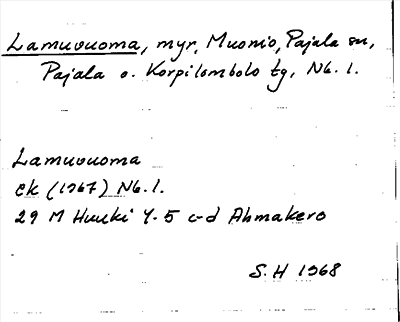 Lamuvuoma, myr, Muonio, Pajala sn,
Pajala o. Korpilombolo tg, Nb. l.
Lamuvuoma
ek (1967) Nb. l.
29 M Huuki 4-5 c-d Ahmakero
S. H 1968